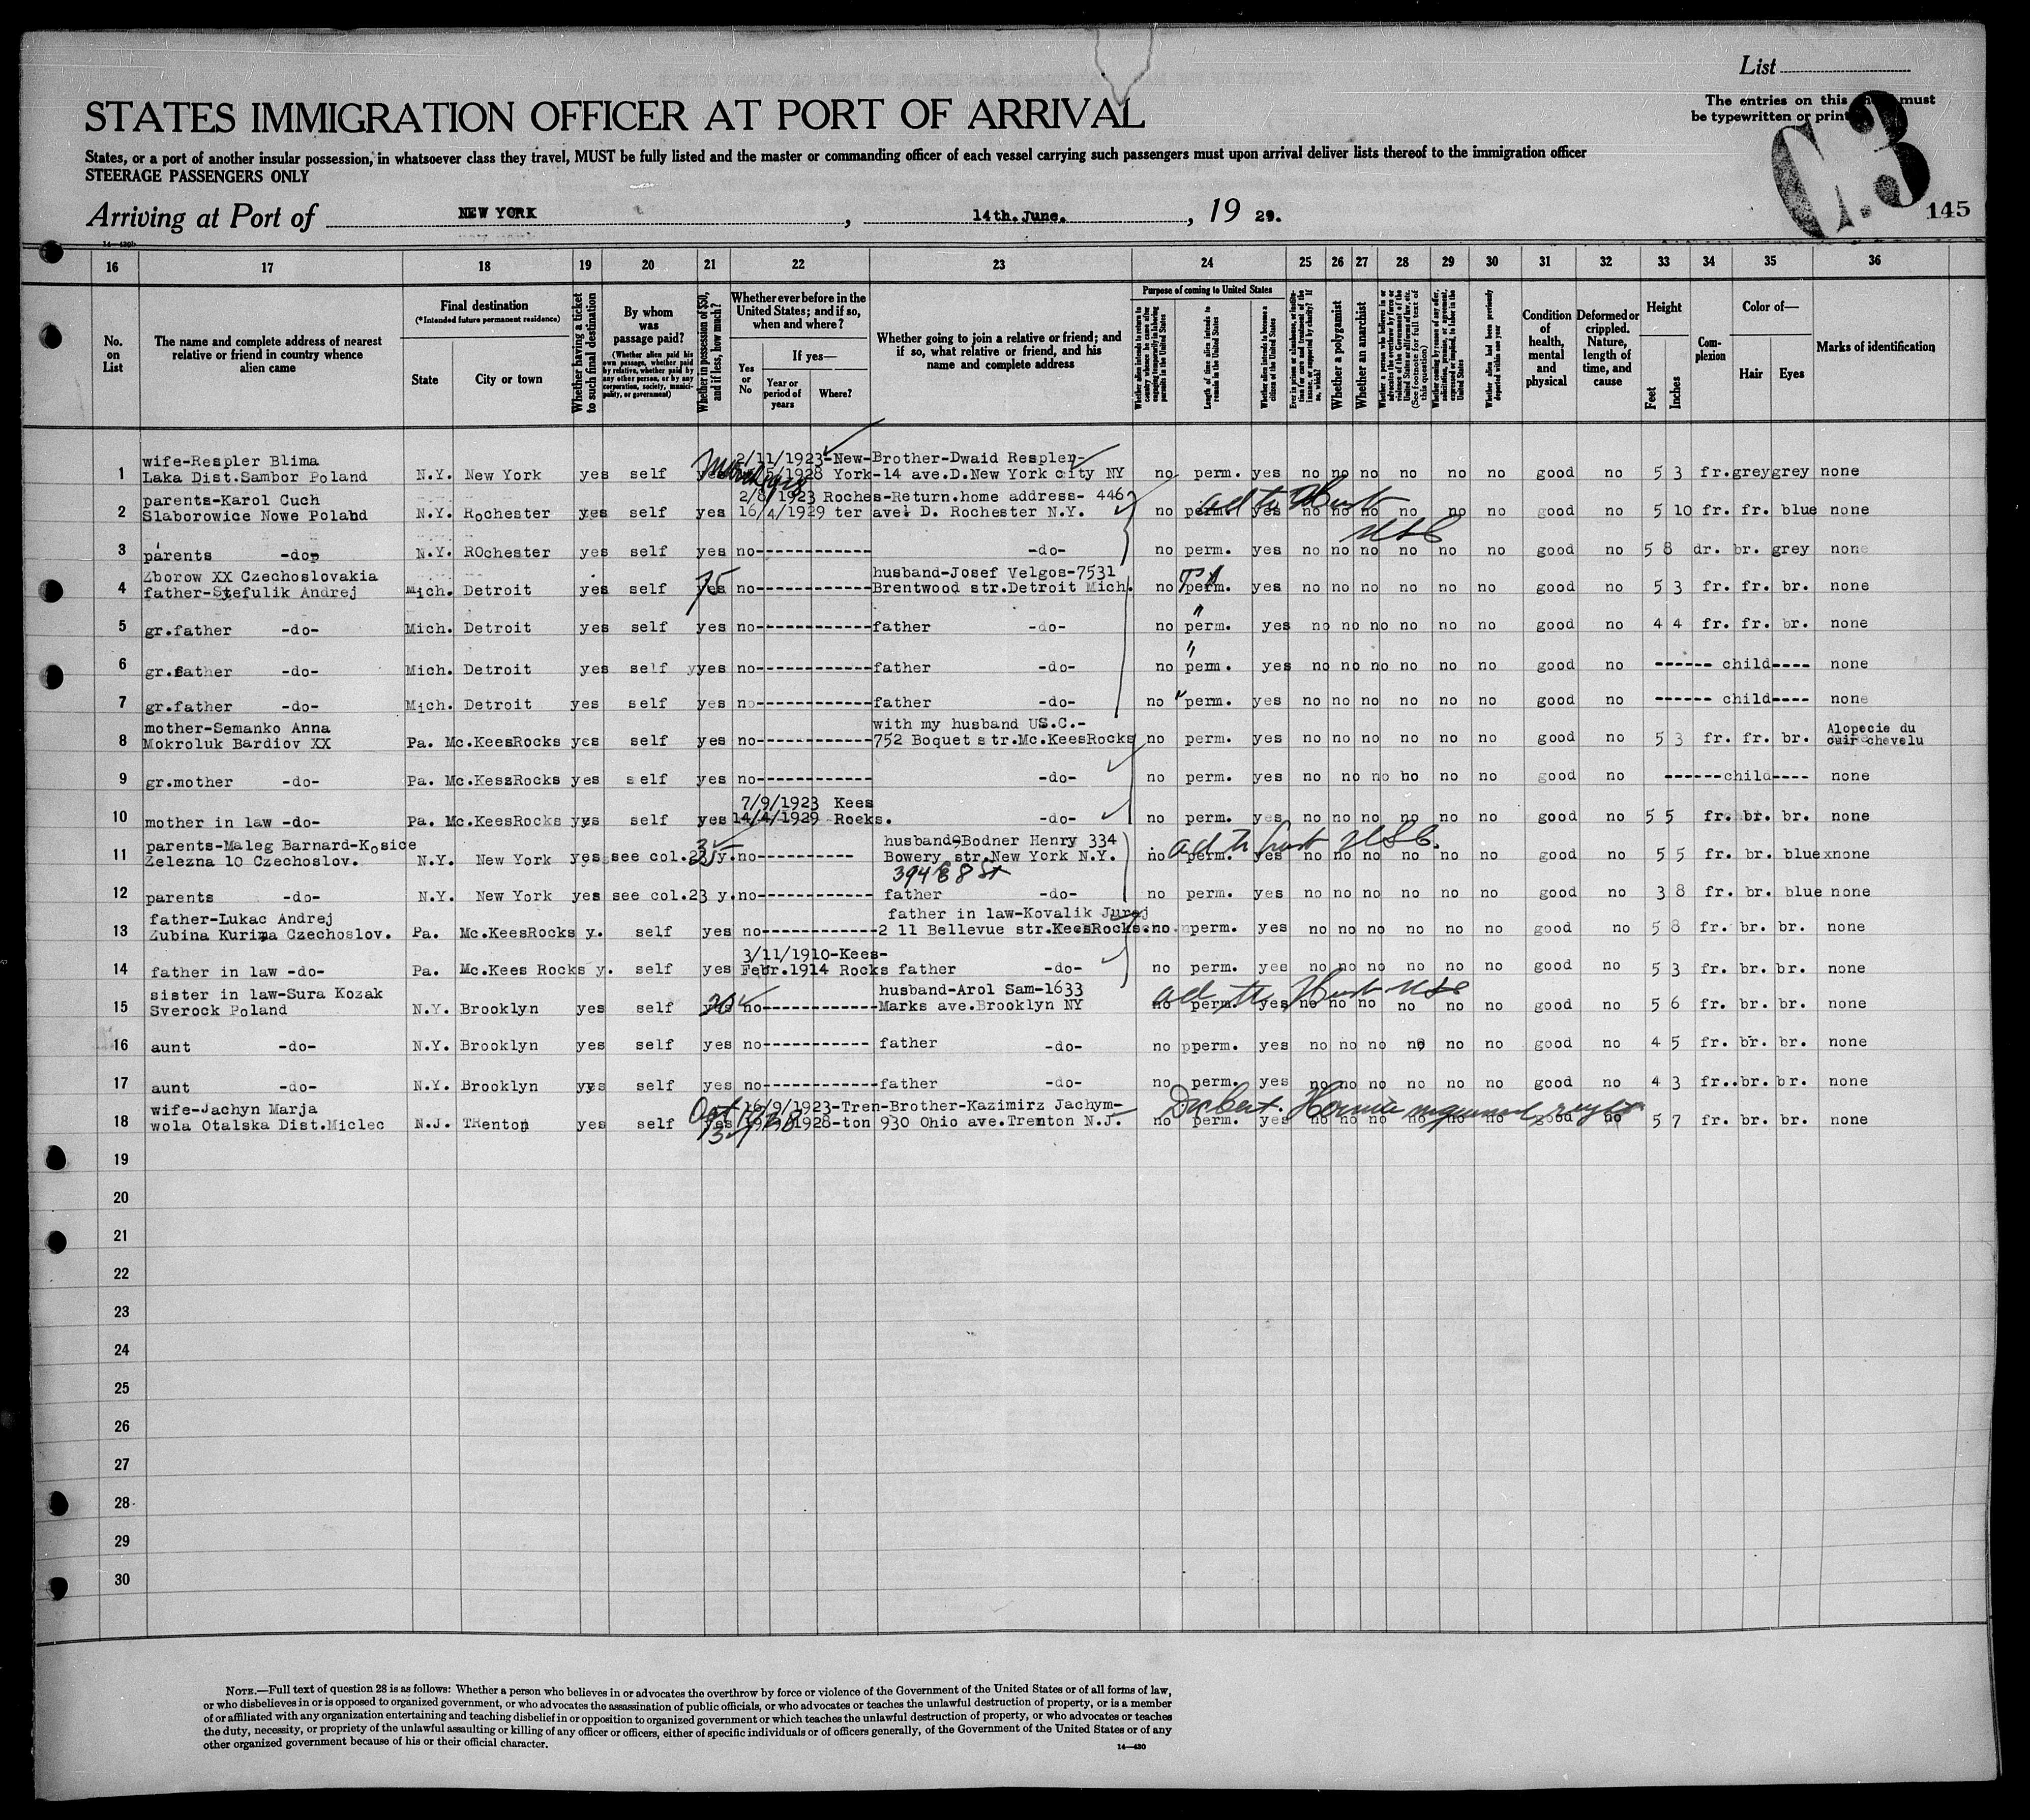 List
The entries on this must
be typewritten or print
C.3
STATES IMMIGRATION OFFICER AT PORT OF ARRIVAL
States, or a port of another insular possession, in whatsoever class they travel, MUST be fully listed and the master or commanding officer of each vessel carrying such passengers must upon arrival deliver lists thereof to the immigration officer
STEERAGE PASSENGERS ONLY
Arriving at Port of NEW YORK, 14th.June., 19 29.
145
14—430b
16 17 18 19 20 21 22 23 24 25 26 27 28 29 30 31 32 33 34 35 36
No. on List
The name and complete address of nearest relative or friend in country whence alien came
Final destination
(*Intended future permanent residence)
State
City or town
Whether having a ticket to such final destination
By whom was passage paid?
(Whether alien paid his own passage, whether paid by relative, whether paid by any other person, or by any corporation, society, municipality, or government)
Whether in possession of $50, and if less, how much?
Whether ever before in the United States; and if so, when and where?
Yes or No
If yes—
Year or period of years
Where?
Whether going to join a relative or friend; and if so, what relative or friend, and his name and complete address
Purpose of coming to United States
Whether alien intends to return to country whence he came after engaging temporarily in laboring pursuits in the United States
Length of time alien intends to remain in the United States
Whether alien intends to become a citizen of the United States
Whether a polygamist
Whether an anarchist
Whether alien had been previously deported within one year
Condition of health, mental and physical
Deformed or crippled. Nature, length of time, and cause
Height
Feet
Inches
Complexion
Color of—
Hair
Eyes
Marks of identification
wife-Respler Blima 2/11/1923-New-Brother-Dwaid Respler-
1 Laka Dist.Sambor Poland N.Y. New York yes self 1928 York-14 ave.D.New York city NY no perm. yes no no no no no no good no 5 3 fr. grey grey none
parents-Karol Cuch 2/8/1923 Roches-Return.home address- 446
2 Slaborowice Nowe Poland N.Y. Rochester yes self yes 16/4/1929 ter ave. D. Rochester N.Y. no perm. yes no no no no no no good no 5 10 fr. fr. blue none
ad to Husb
USC
3 parents -do- N.Y. ROchester yes self yes no----------- -do- no perm. yes no no no no no no good no 5 8 dr. br. grey none
Zborow XX Czechoslovakia husband-Josef Velgos-7531
4 father-Stefulik Andrej Mich. Detroit yes self yes 75 no----------- Brentwood str.Detroit Mich. no perm. yes no no no no no no good no 5 3 fr. fr. br. none
5 gr.father -do- Mich. Detroit yes self yes no-----------father -do- no perm. yes no no no no no no good no 4 4 fr. fr. br. none
6 gr.father -do- Mich. Detroit yes self yyes no-----------father -do- no perm. yes no no no no no no good no ------ child---- none
7 gr.father -do- Mich. Detroit yes self yes no-----------father -do- no perm. yes no no no no no no good no ------ child---- none
mother-Semanko Anna with my husband US.C.-
8 Mokroluk Bardiov XX Pa. Mc.KeesRocks yes self yes no-----------752 Boquet str.Mc.KeesRocks no perm. yes no no no no no no good no 5 3 fr. fr. br. Alopecie du
cuir chevelu
9 gr.mother -do- Pa. Mc.KessRocks yes self yes no----------- -do- no perm. yes no no no no no no good no ------child---- none
7/9/1923 Kees
10 mother in law -do- Pa. Mc.KeesRocks yes self yes 14/4/1929 Rocks. -do- no perm. yes no no no no no no good no 5 5 fr. br. br. none
parents-Maleg Barnard-Kosice husband-Bodner Henry 334
11 Zelezna 10 Czechoslov. N.Y. New York yes see col.23 y. no---------- Bowery str.New York N.Y. no perm. yes no no no no no no good no 5 5 fr. br. blue xnone
ad to husb USC.
394 E 8 St
12 parents -do- N.Y. New York yes see col.23 y. no----------- father -do- no perm. yes no no no no no no good no 3 8 fr. br. blue none
father-Lukac Andrej father in law-Kovalik Juraj
13 Zubina Kurima Czechoslov. Pa. Mc.KeesRocks y. self yes no-----------2 11 Bellevue str.KeesRocks. no perm. yes no no no no no no good no 5 8 fr. br. br. none
3/11/1910-Kees-
14 father in law -do- Pa. Mc.Kees Rocks y. self yes Febr.1914 Rocks father -do- no perm. yes no no no no no no good no 5 3 fr. br. br. none
sister in law-Sura Kozak husband-Arol Sam-1633
15 Sverock Poland N.Y. Brooklyn yes self yes no-----------Marks ave.Brooklyn NY no perm. yes no no no no no no good no 5 6 fr. br. br. none
ad to Husb USC
16 aunt -do- N.Y. Brooklyn yes self yes no----------- father -do- no pperm. yes no no no no no no good no 4 5 fr. br. br. none
17 aunt -do- N.Y. Brooklyn yes self yes no-----------father -do- no perm. yes no no no no no no good no 4 3 fr..br. br. none
wife-Jachyn Marja 16/9/1923-Tren-Brother-Kazimirz Jachym-
18 wola Otalska Dist.Miclec N.J. THenton yes self yes 1928-ton 930 Ohio ave.Trenton N.J. no perm. yes no no no no no no good no 5 7 fr. br. br. none
19
20
21
22
23
24
25
26
27
28
29
30
NOTE.—Full text of question 28 is as follows: Whether a person who believes in or advocates the overthrow by force or violence of the Government of the United States or of all forms of law,
or who disbelieves in or is opposed to organized government, or who advocates the assassination of public officials, or who advocates or teaches the unlawful destruction of property, or is a member
of or affiliated with any organization entertaining and teaching disbelief in or opposition to organized government or which teaches the unlawful destruction of property, or who advocates or teaches
the duty, necessity, or propriety of the unlawful assaulting or killing of any officer or officers, either of specific individuals or of officers generally, of the Government of the United States or of any
other organized government because of his or their official character.
14—430